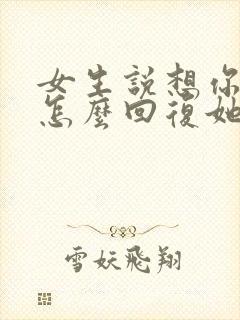 女生説想你
怎麼回復她
雪妖飛翔